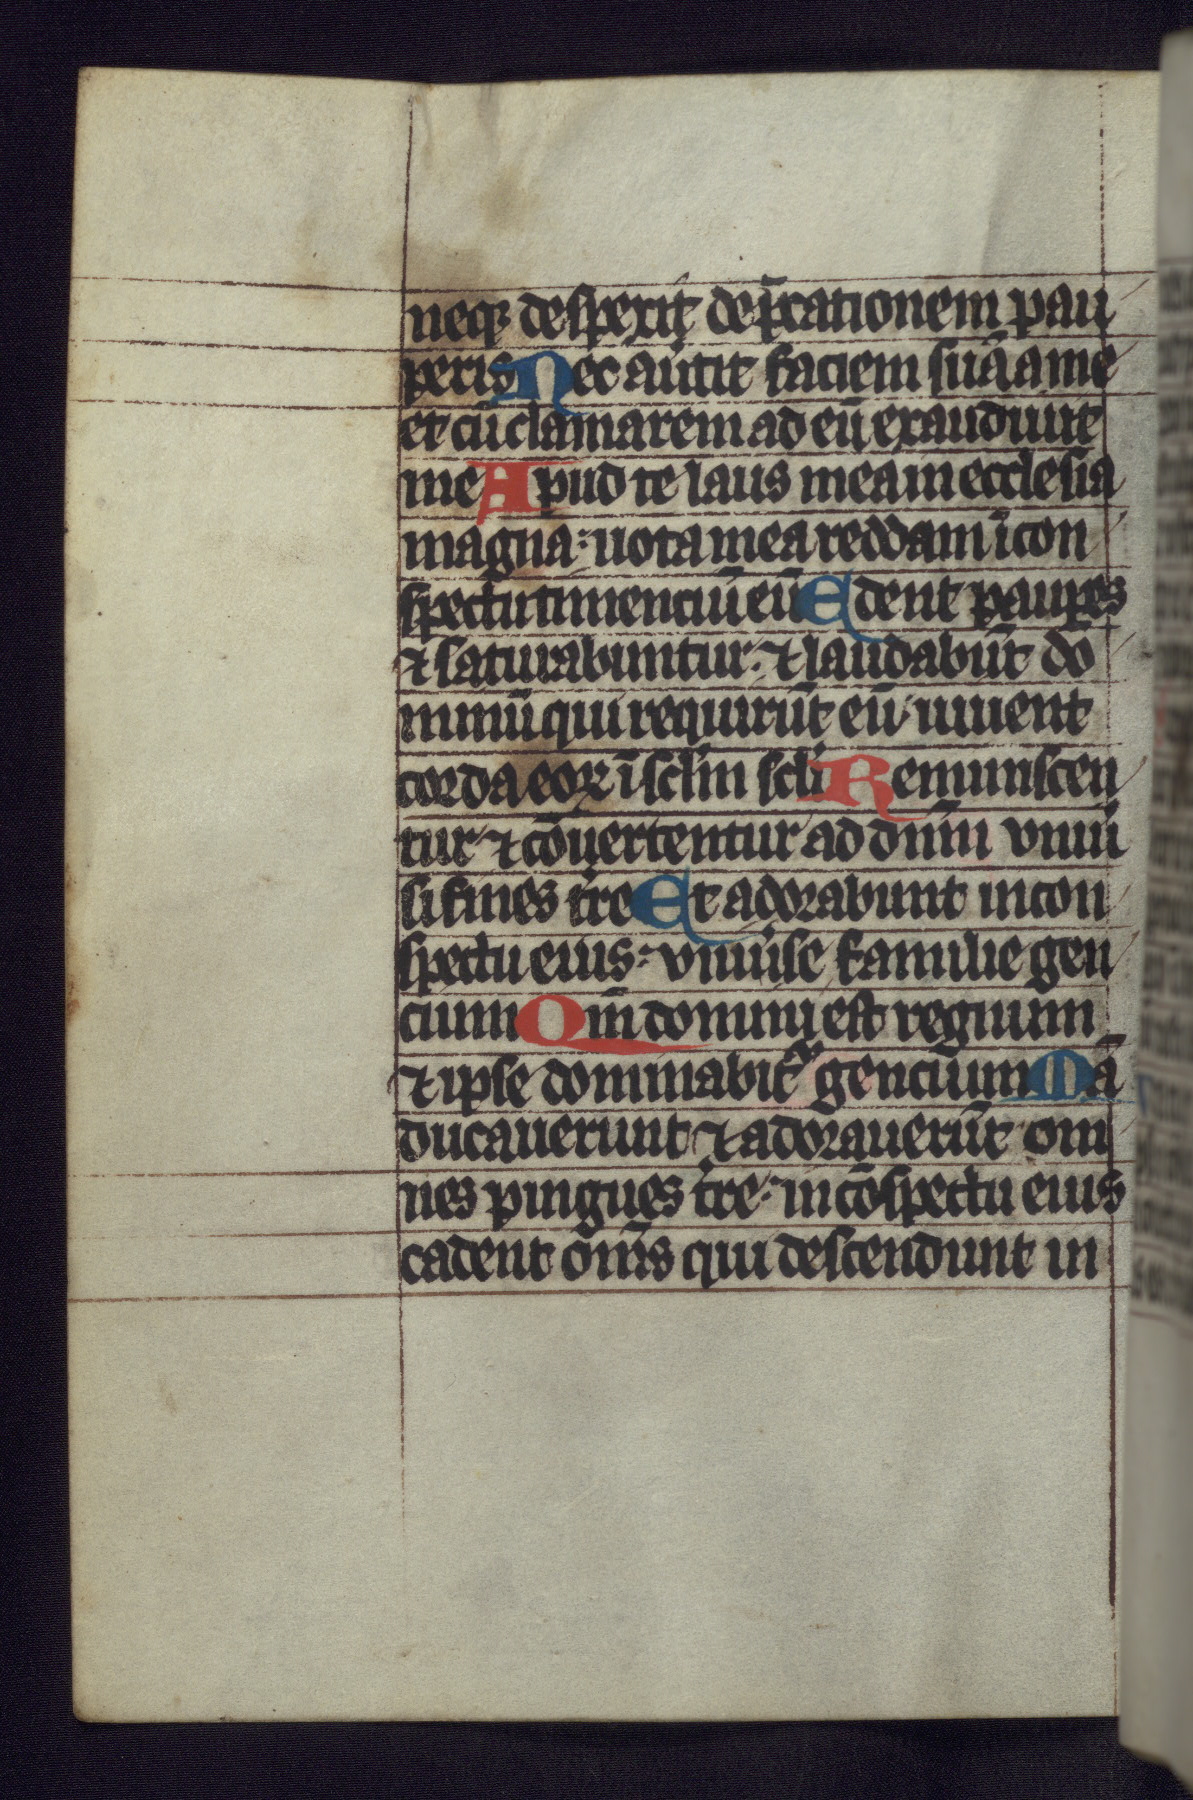 neq; despexit dep̄cationem pau
peris Nec auertit faciem suā a me
et cū clamarem ad eū exaudiuit
me Apud te laus mea in ecclesia
magna: uota mea reddam ī con
spectu timenciū eū Edent paup̱es
⁊ saturabuntur: ⁊ laudabūt do
minū qui requirūt eū uiuent
corda eoꝝ ī sclm̄ scli Reminiscen
tur ⁊ cōuertentur ad dn̄m vniu̾
si fines tr̄e Et adorabunt in con
spectu eius: vniu̾se familie gen
cium Qm̄ domini est regnum
⁊ ipse dominabit᷑ gencium Mā
ducauerunt ⁊ adorauerūt om
nes pingues tr̄e: in cōspectu eius
cadent om̄s qui descendunt in